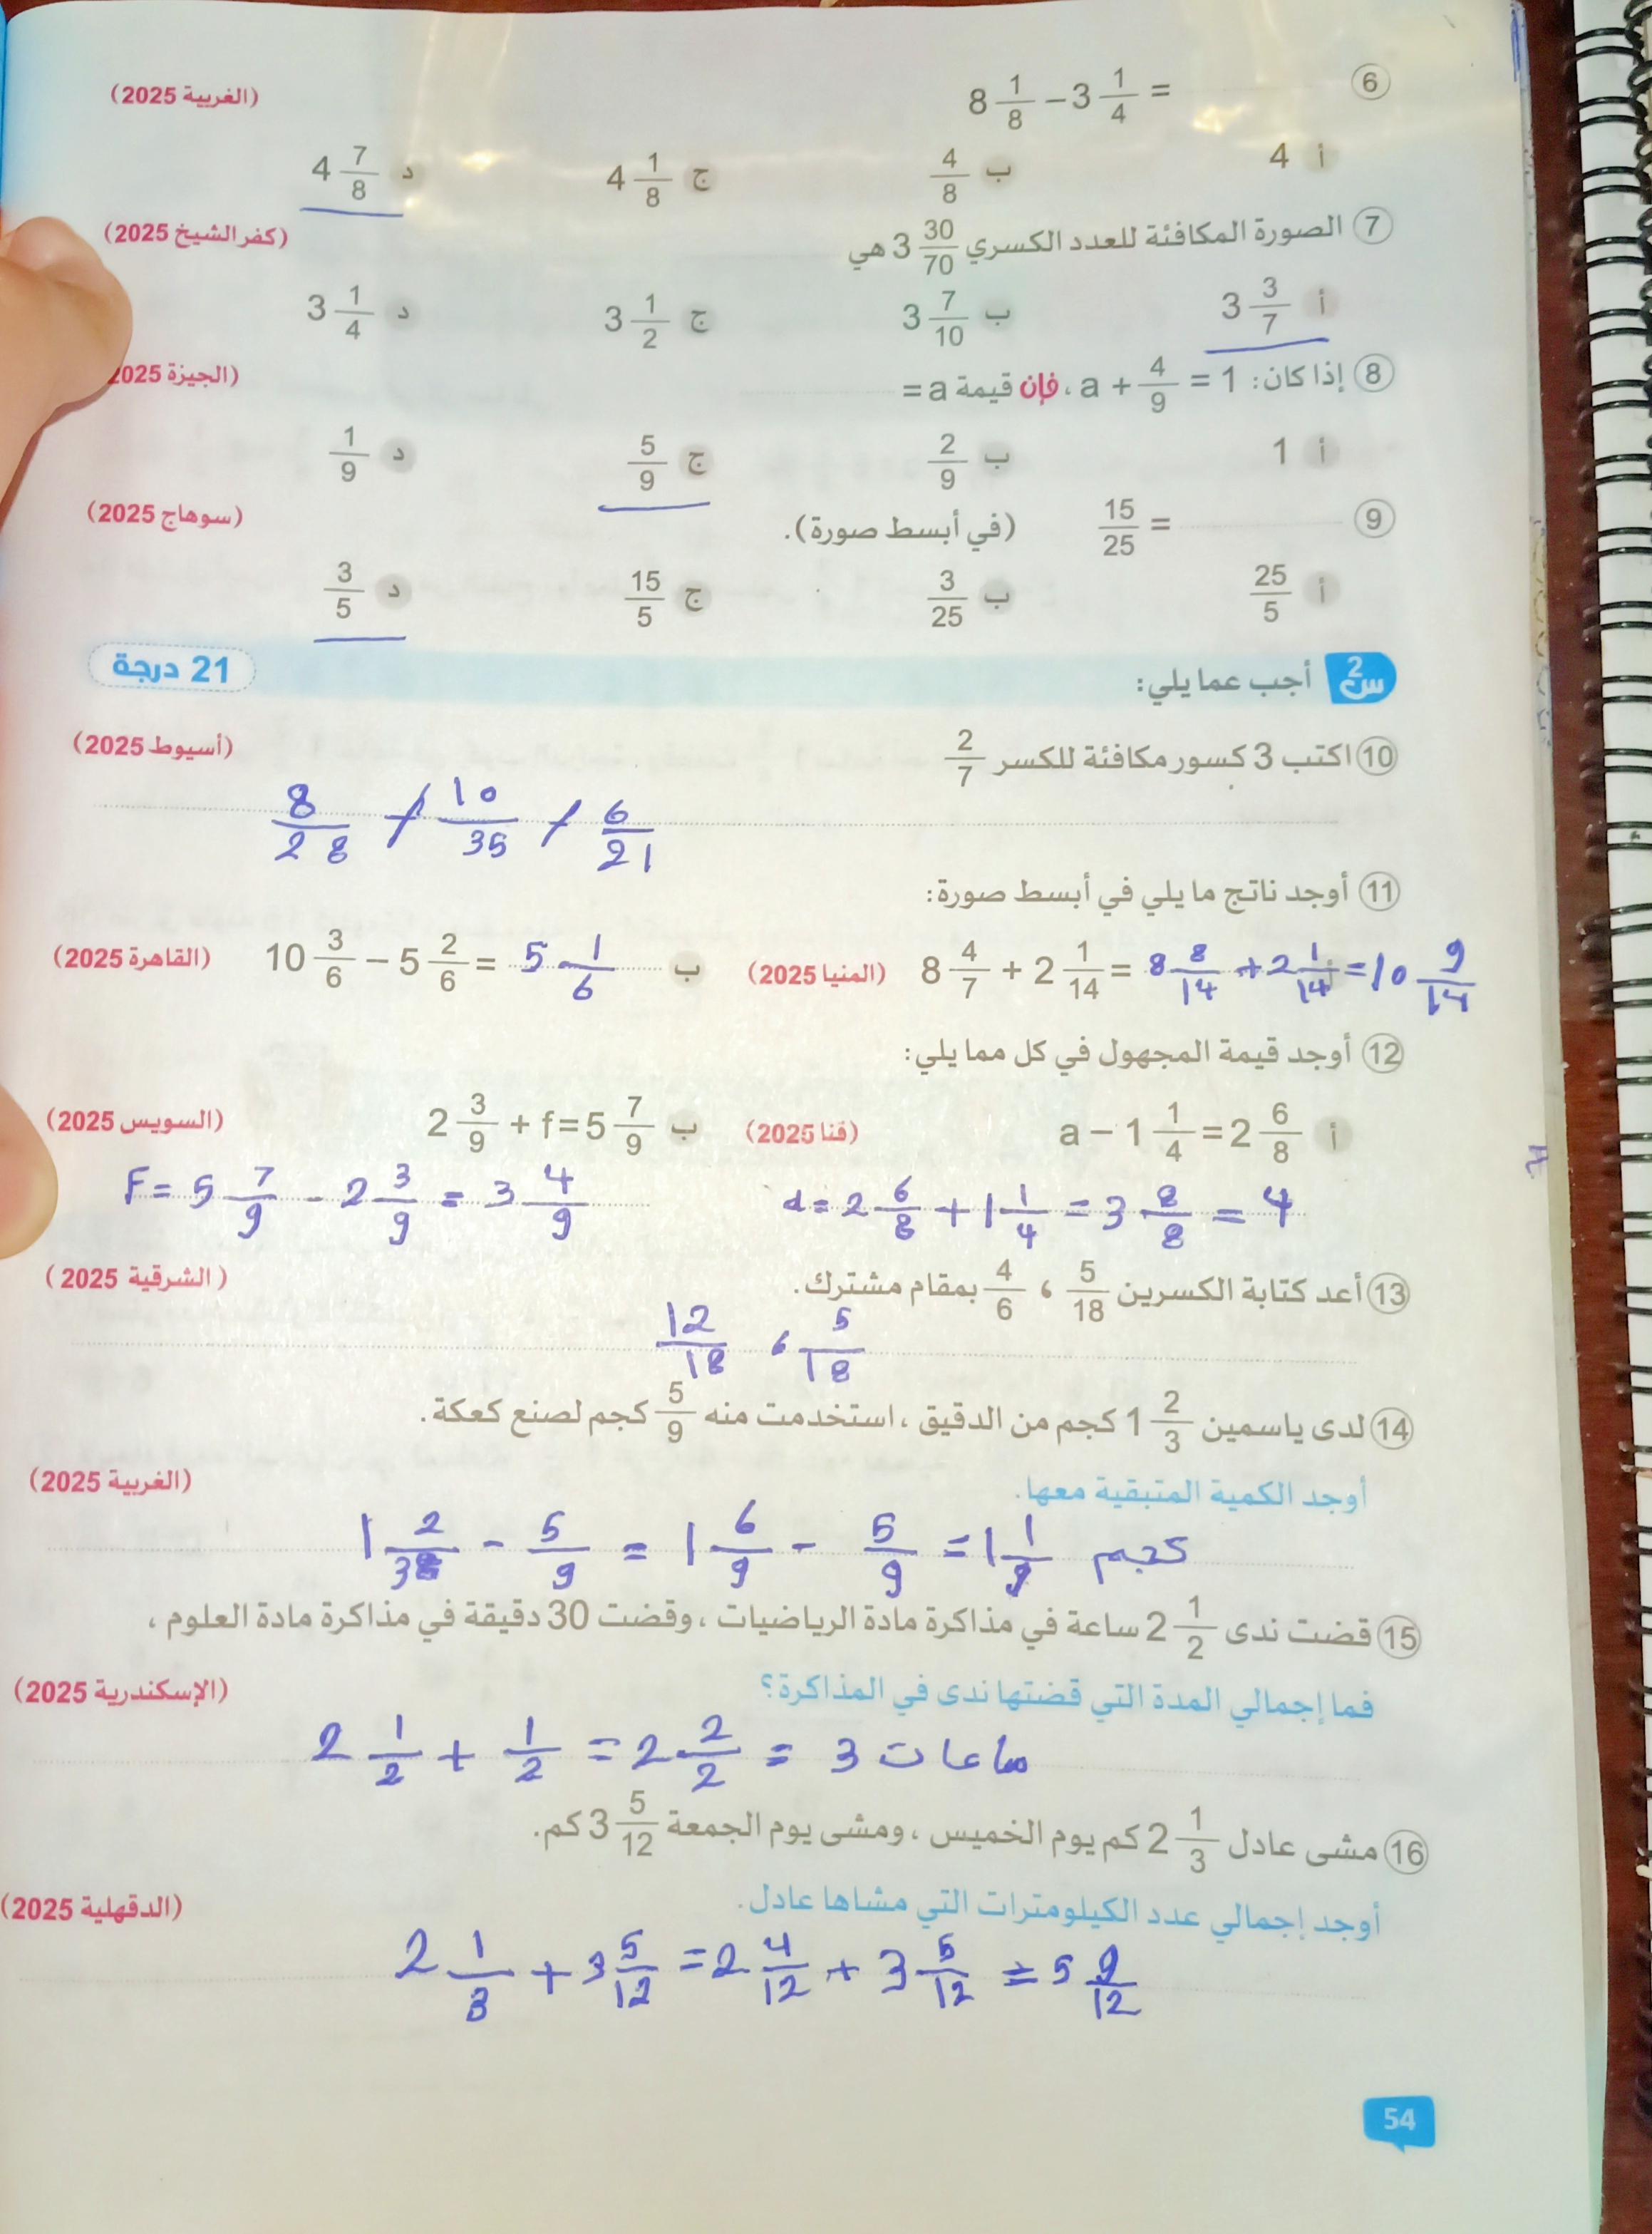 6 8 1/8 - 3 1/4 = (الغربية 2025)
أ 4 ب 4/8 ج 4 1/8 د 4 7/8
7 الصورة المكافئة للعدد الكسري 3 30/70 هي (كفر الشيخ 2025)
أ 3 3/7 ب 3 7/10 ج 3 1/2 د 3 1/4
8 إذا كان: a + 4/9 = 1 ، فإن قيمة a = (الجيزة 2025
أ 1 ب 2/9 ج 5/9 د 1/9
9 15/25 = (في أبسط صورة). (سوهاج 2025)
أ 25/5 ب 3/25 ج 15/5 د 3/5
س2 أجب عما يلي: 21 درجة
10 اكتب 3 كسور مكافئة للكسر 2/7 (أسيوط 2025)
8/28 / 10/35 / 6/21
11 أوجد ناتج ما يلي في أبسط صورة:
8 4/7 + 2 1/14 = 8 8/14 + 2 1/14 = 10 9/14 (المنيا 2025)
ب 10 3/6 - 5 2/6 = 5 1/6 (القاهرة 2025)
12 أوجد قيمة المجهول في كل مما يلي:
أ a - 1 1/4 = 2 6/8 (قنا 2025)
ب 2 3/9 + f = 5 7/9 (السويس 2025)
a = 2 6/8 + 1 1/4 = 3 8/8 = 4
F = 5 7/9 - 2 3/9 = 3 4/9
13 أعد كتابة الكسرين 5/18 ، 4/6 بمقام مشترك. (الشرقية 2025)
12/18 ، 5/18
14 لدى ياسمين 1 2/3 كجم من الدقيق ، استخدمت منه 5/9 كجم لصنع كعكة.
أوجد الكمية المتبقية معها. (الغربية 2025)
1 2/3 - 5/9 = 1 6/9 - 5/9 = 1 1/9 كجم
15 قضت ندى 2 1/2 ساعة في مذاكرة مادة الرياضيات ، وقضت 30 دقيقة في مذاكرة مادة العلوم ،
فما إجمالي المدة التي قضتها ندى في المذاكرة؟ (الإسكندرية 2025)
2 1/2 + 1/2 = 2 2/2 = 3 ساعات
16 مشى عادل 2 1/3 كم يوم الخميس ، ومشى يوم الجمعة 3 5/12 كم.
أوجد إجمالي عدد الكيلومترات التي مشاها عادل. (الدقهلية 2025)
2 1/3 + 3 5/12 = 2 4/12 + 3 5/12 = 5 9/12
54